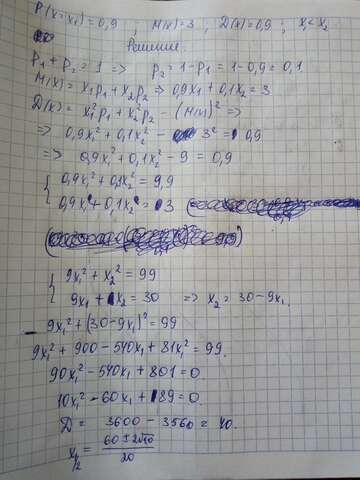 P(x=x₁)=0,9 ; M(x)=3 ; D(x)=0,9 ; x₁<x₂
Решение.
p₁+p₂=1 => p₂=1-p₁=1-0,9=0,1
M(x)=x₁p₁+x₂p₂ => 0,9x₁+0,1x₂=3
D(x)=x₁²p₁+x₂²p₂-(M(x))² =>
=> 0,9x₁²+0,1x₂²- 3²= 0,9
=> 0,9x₁²+0,1x₂²-9=0,9
{ 0,9x₁²+0,1x₂²=9,9
0,9x₁+0,1x₂=3
{ 9x₁²+x₂²=99
9x₁+x₂=30 => x₂=30-9x₁
9x₁²+(30-9x₁)²=99
9x₁²+900-540x₁+81x₁²=99.
90x₁²-540x₁+801=0.
10x₁²-60x₁+89=0.
D= 3600-3560=40.
x₁/₂= (60±2√10)/20